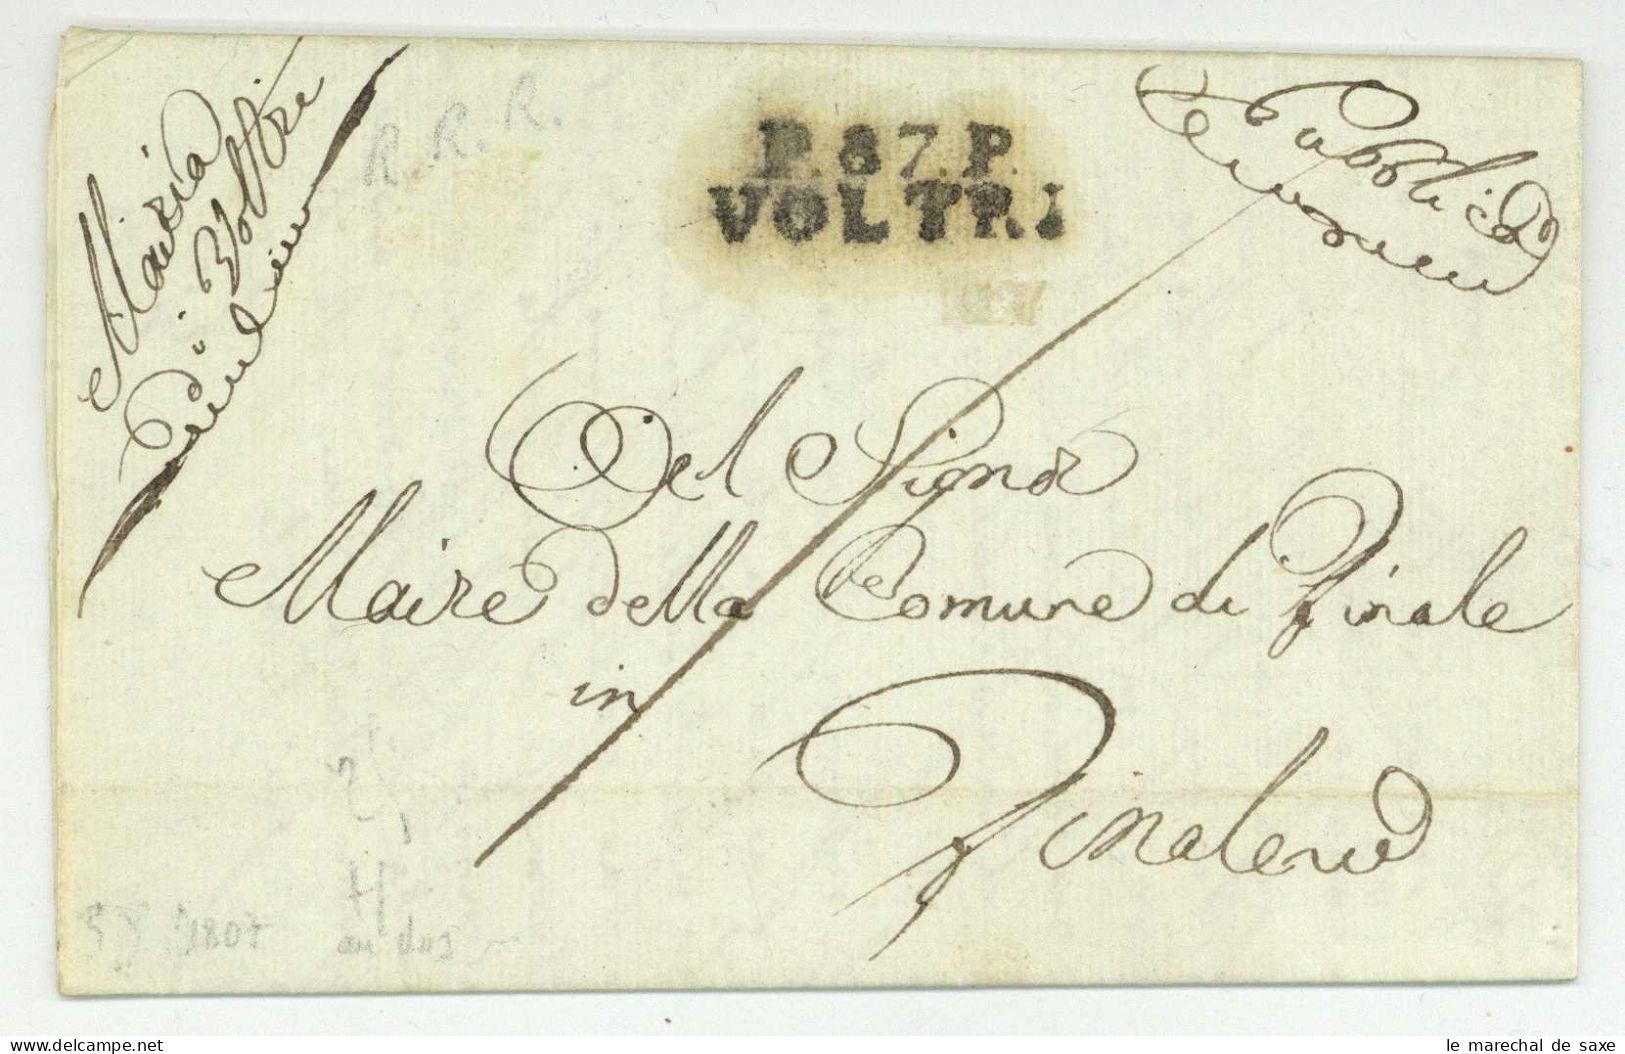 Mairia
di Voltri
R. R. R.
P.87.P.
VOLTRI
Pubblico
Servizio
Del Signor
Maire della Comune di Finale
in
Finale
1807
au dos
www.delcampe.net
le marechal de saxe